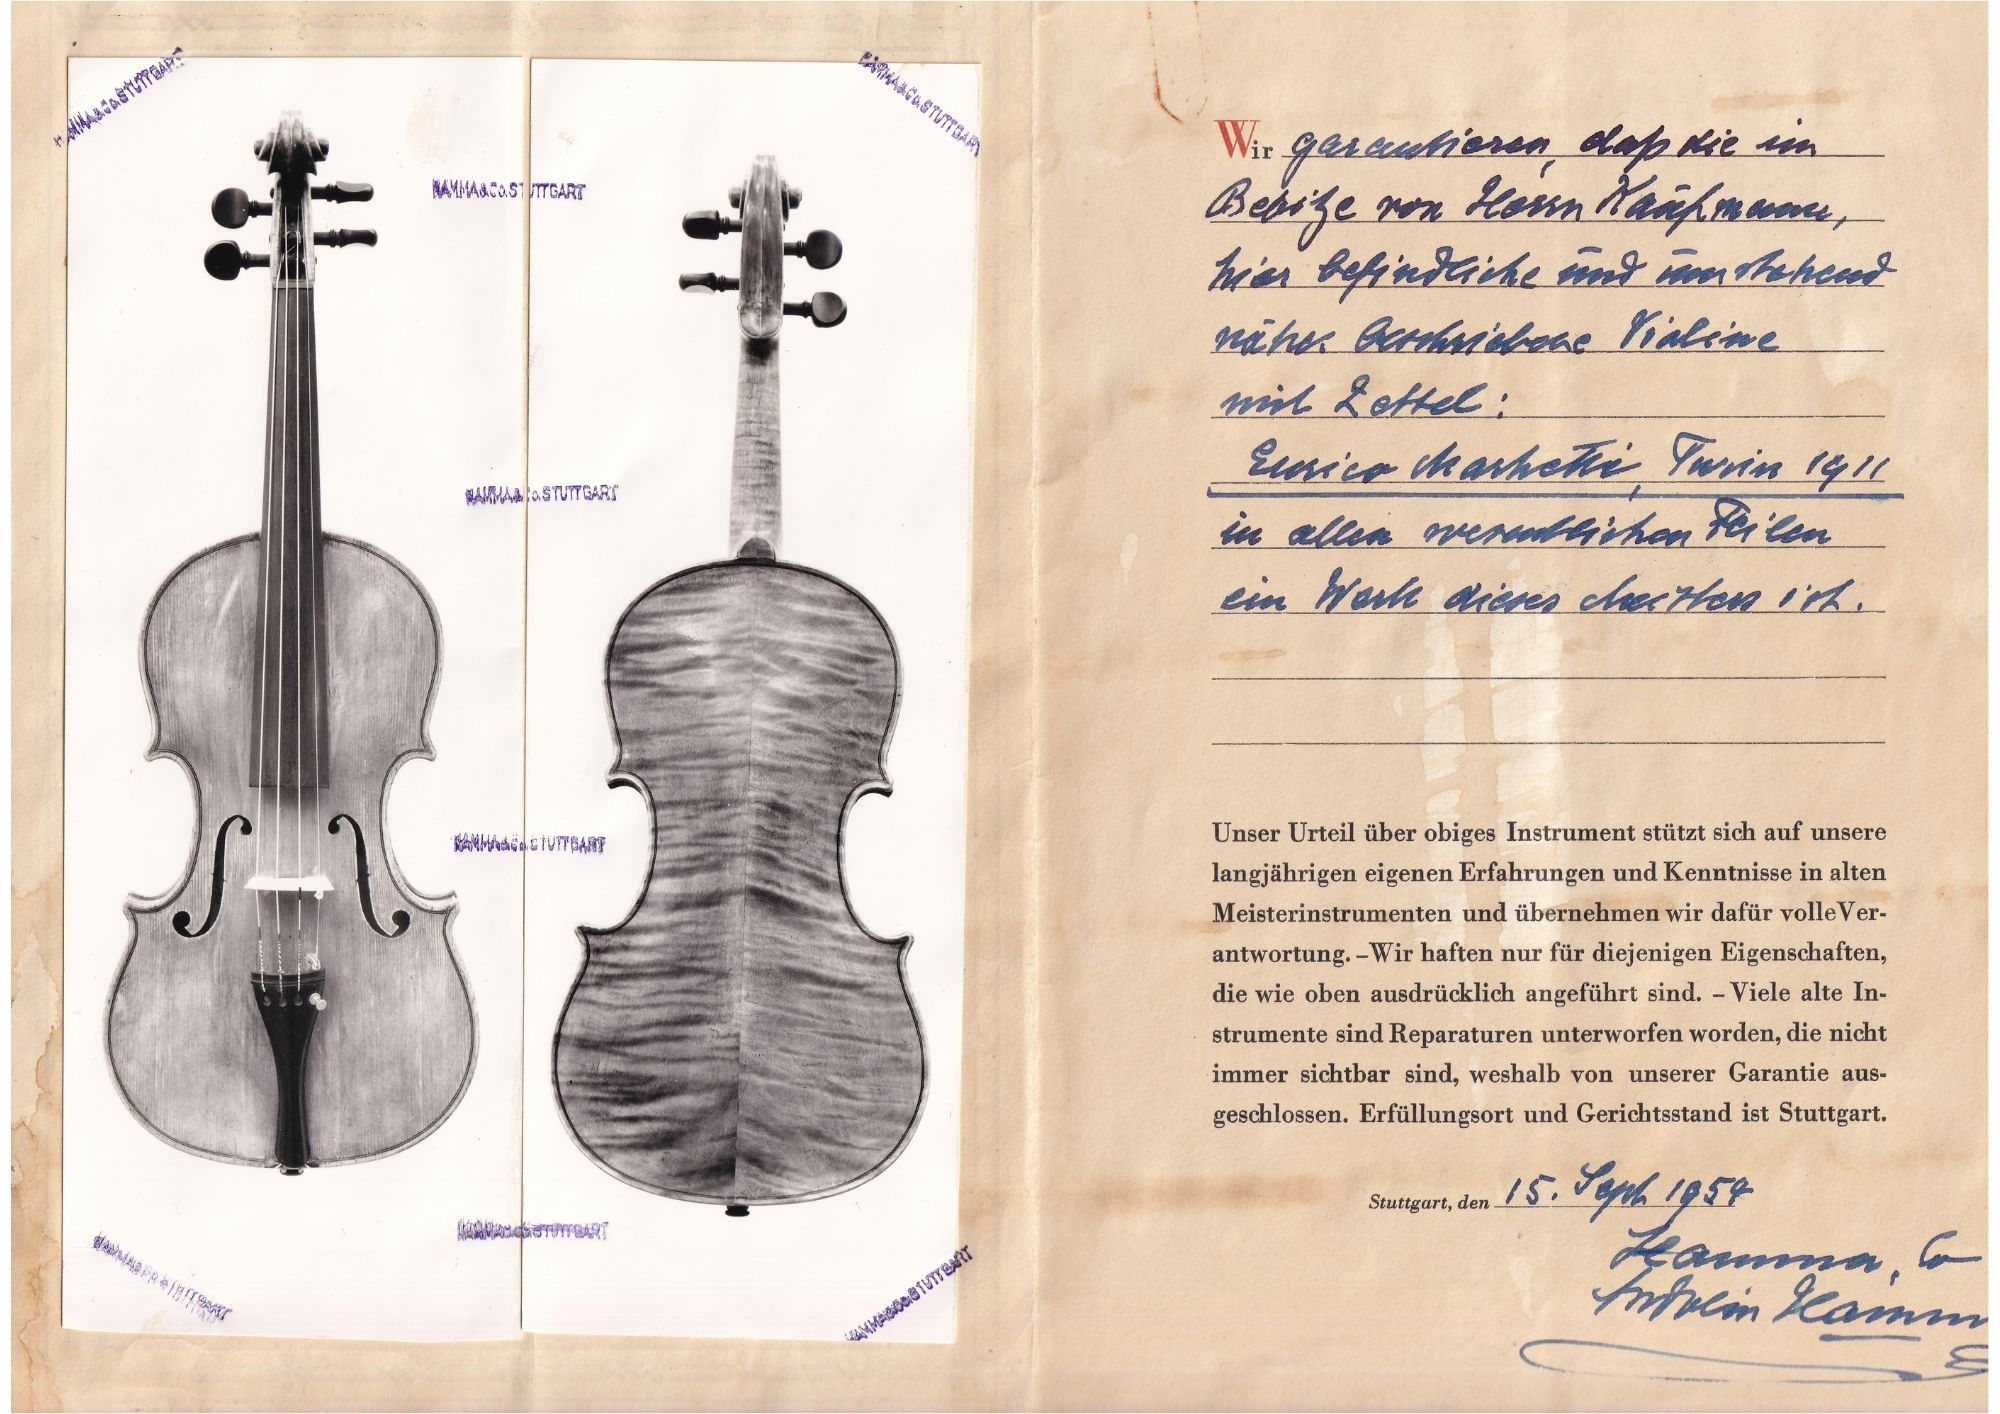 HAMMA & Co. STUTTGART
HAMMA & Co. STUTTGART
HAMMA & Co. STUTTGART
HAMMA & Co. STUTTGART
HAMMA & Co. STUTTGART
HAMMA & Co. STUTTGART
HAMMA & Co. STUTTGART
HAMMA & Co. STUTTGART
Wir garantieren, daß die im
Besitze von Herrn Kaufmann,
hier befindliche und umstehend
näher beschriebene Violine
mit Zettel:
Enrico Marchetti, Turin 1911
in allen wesentlichen Teilen
ein Werk dieses Meisters ist.
Unser Urteil über obiges Instrument stützt sich auf unsere
langjährigen eigenen Erfahrungen und Kenntnisse in alten
Meisterinstrumenten und übernehmen wir dafür volle Ver-
antwortung. – Wir haften nur für diejenigen Eigenschaften,
die wie oben ausdrücklich angeführt sind. – Viele alte In-
strumente sind Reparaturen unterworfen worden, die nicht
immer sichtbar sind, weshalb von unserer Garantie aus-
geschlossen. Erfüllungsort und Gerichtsstand ist Stuttgart.
Stuttgart, den 15. Sept 1954
Hamma, Co
Fridolin Hamm